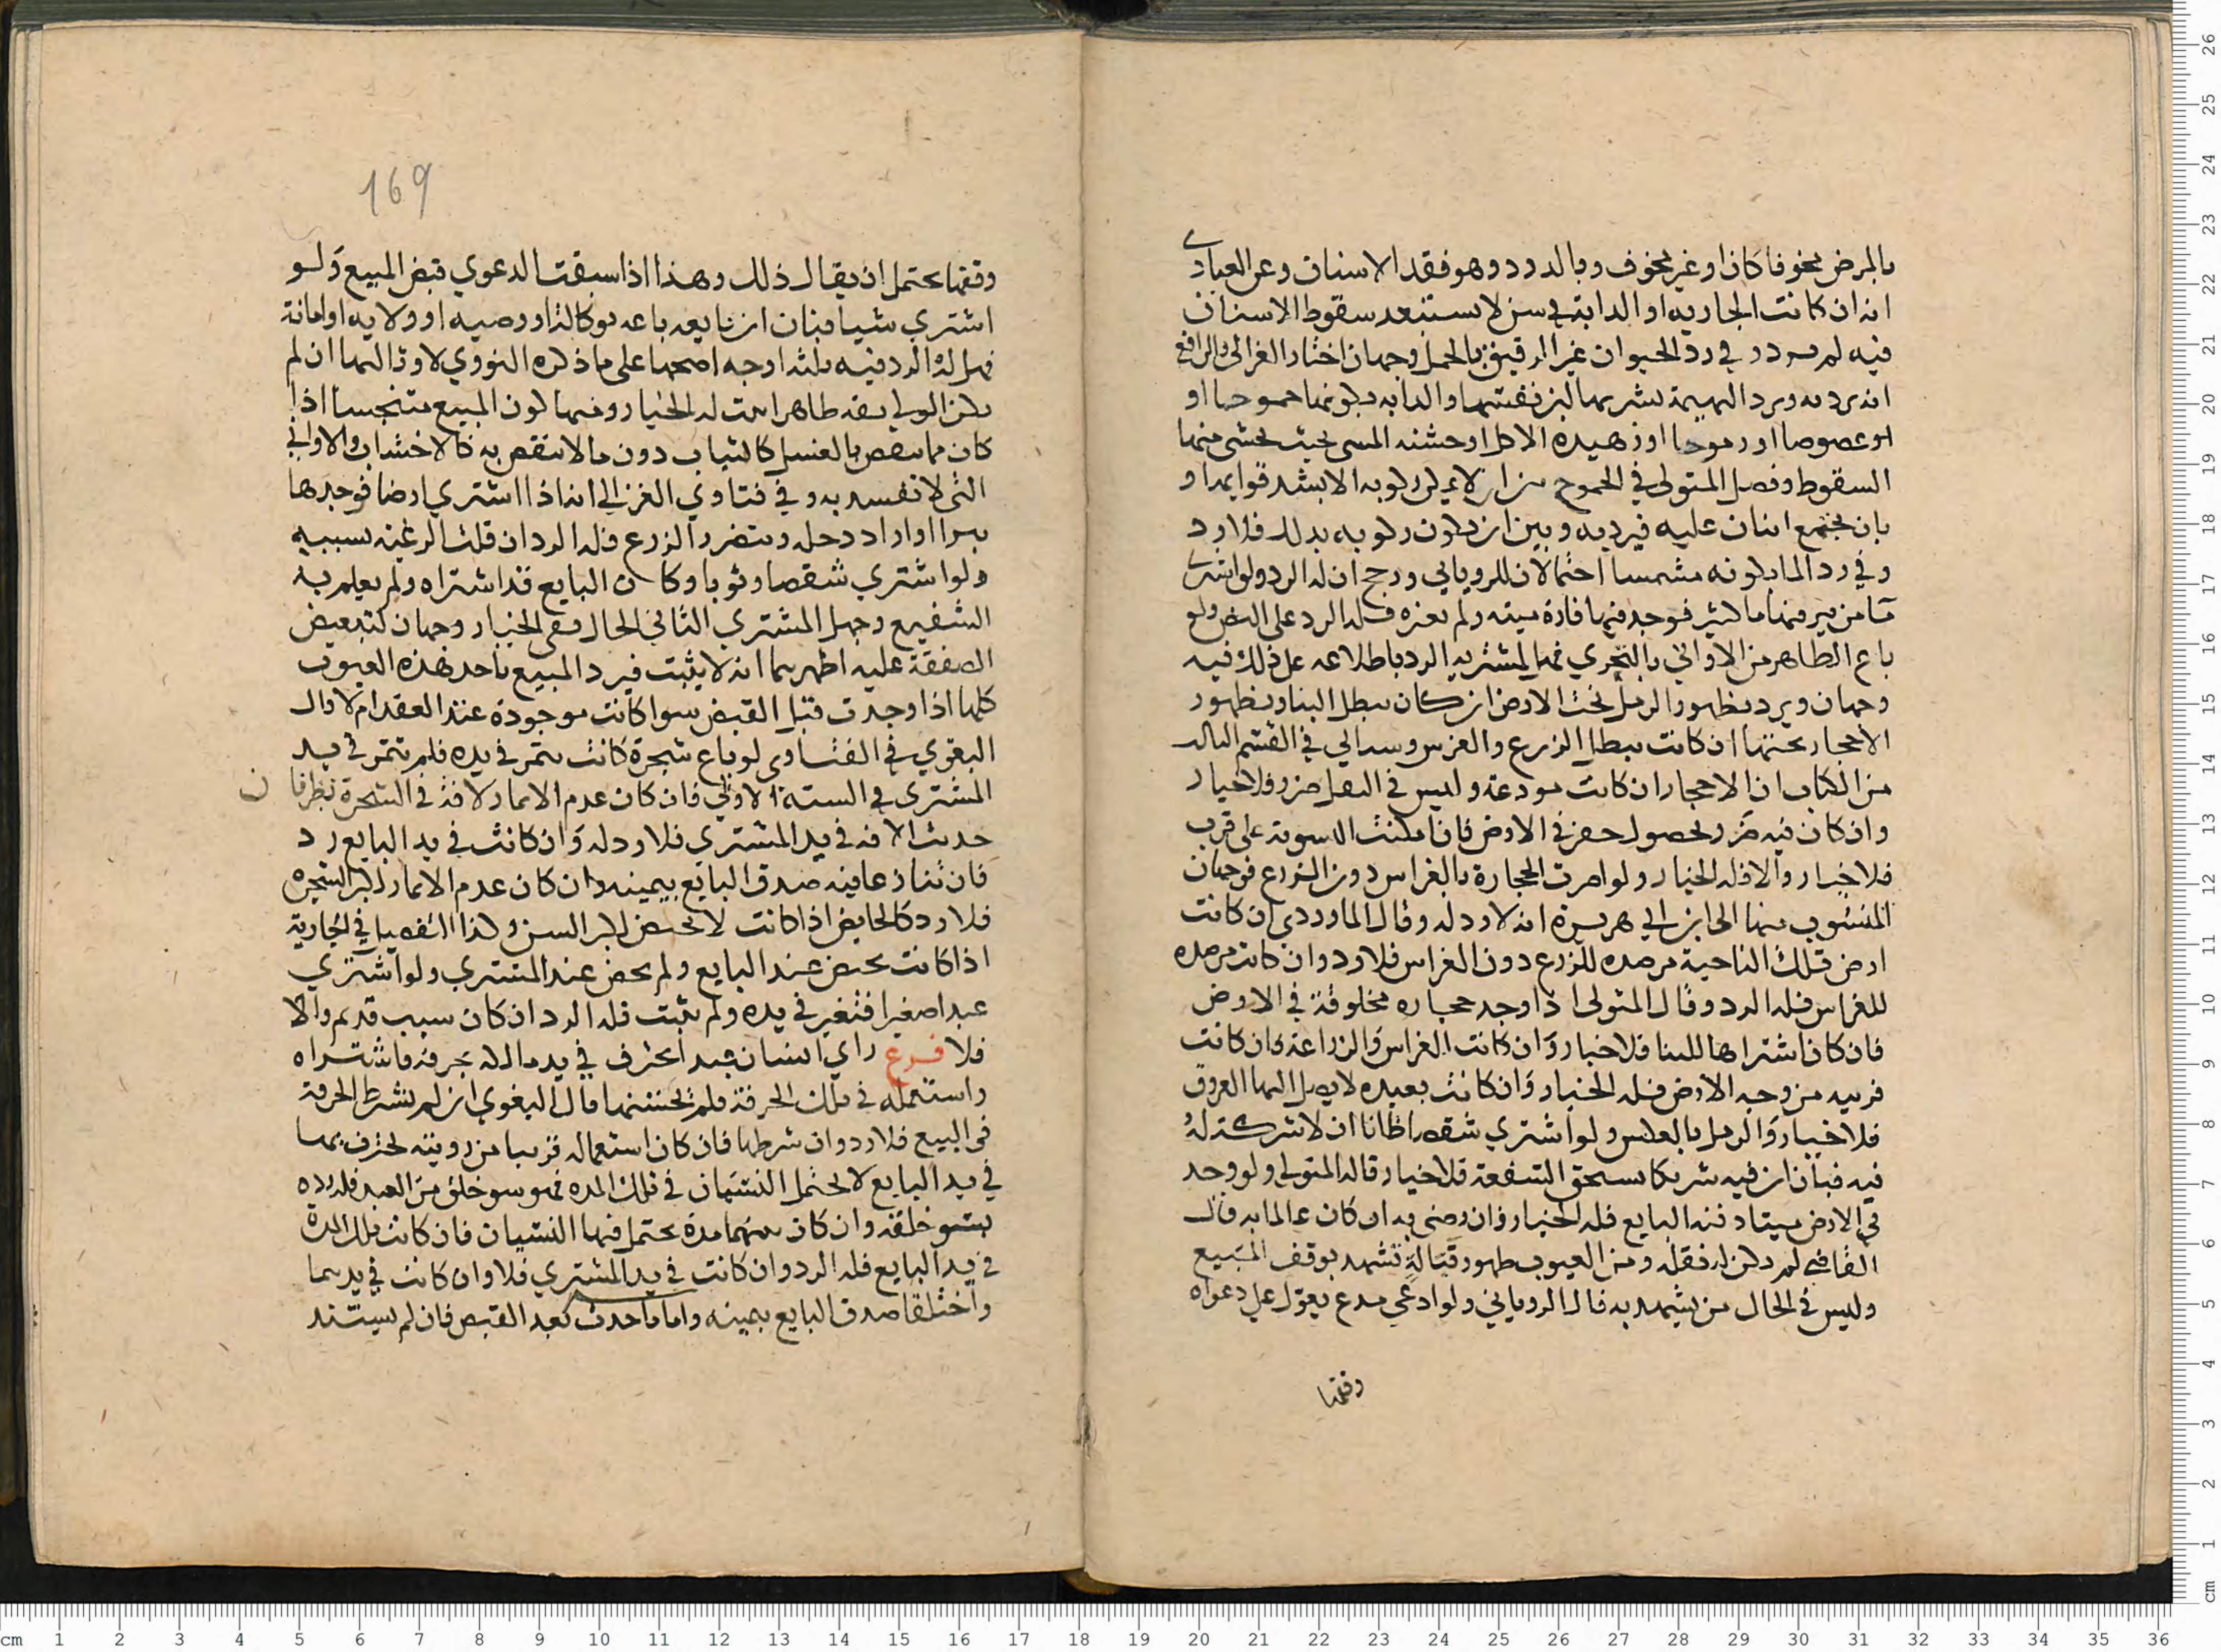 بالمرض مخوفا كان او غير مخوف وبالدرد وهو فقد الاسنان وعن العبادي
انه ان كانت الجارية او الدابة في سن لا يستبعد سقوط الاسنان
فيه لم يرد وفي رد الحيوان غير الرقيق بالحمل وجهان اختار الغزالي والرافعي
انه يرد به ويرد البهيمة بشربها لبن نفسها والدابة بكونها جموحا او
او عضوضا او رموحا او زهيدة الاكل او خشنة المشي بحيث يخشى منها
السقوط وفصل المتولي في الجموح من ان لا يمكن ركوبه الا بشد قوايمه او
بان يجتمع اثنان عليه فيرد به وبين ان يكون ركوبه بذلك فلا رد
وفي رد الما بكونه مشمسا احتمالان للروياني ورجح ان له الرد ولو اشترى
من بير فيها ما كثير فوجد فيها فارة ميتة ولم يغيره فله الرد على النص ولو
باع الطاهر من الاواني بالتحري فهل لمشتريه الرد باطلاعه على ذلك فيه
وجهان ويرد بظهور الرمل تحت الارض ان كان يبطل البنا وبظهور
الاحجار تحتها ان كانت تبطل الزرع والغرس وسياتي في القسم الثالث
من الكتاب ان الاحجار ان كانت مودعة وليس في النقل ضرر فلا خيار
وان كان فيه ضرر لحصول حفر في الارض فان امكنت التسوية على قرب
فلا خيار والا فله الخيار ولو اضرت الحجارة بالغراس دون الزرع فوجهان
المنسوب منهما الى ابن ابي هريرة انه لا رد له وقال الماوردي ان كانت
ارض تلك الناحية مرصدة للزرع دون الغراس فلا رد وان كانت مرصدة
للغراس فله الرد وقال المتولي اذا وجد حجارة مخلوقة في الارض
فان كان اشتراها للبنا فلا خيار وان كانت الغراس والزراعة وان كانت
قريبه من وجه الارض فله الخيار وان كانت بعيده لا يصل اليها العروق
فلا خيار والرمل بالعكس ولو اشتري شقصا ظانا ان لا شركة له
فيه فبان ان فيه شريكا يستحق الشفعة فلا خيار قاله المتولي ولو وجد
في الارض ميتا دفنه البايع فله الخيار فان رضي به ان كان عالما به قال
القاضي لم يكن له نقله ومن العيوب ظهور قبالة تشهد بوقف المبيع
وليس في الحال من يشهد به قال الروياني ولو ادعى مدع يعول على دعواه
وقفها
169
وقفها يحتمل ان يقال ذلك وهذا اذا سبقت الدعوي قبض المبيع ولو
اشتري شيا فبان ان بايعه باعه بوكالة او وصيه او ولايه او امانة
فهل له الرد فيه ثلثه اوجه اصحها على ما ذكره النووي لا وثالثها ان لم
يكن الولي ثقه ظاهرا ثبت له الخيار ومنها كون المبيع متنجسا اذا
كان مما ينقص بالغسل كالثياب دون ما لا ينقص به كالاخشاب والاواني
التي لا تفسد به وفي فتاوي الغزالي انه اذا اشتري ارضا فوجدها
بيرا او اراد دخله ويتضرر الزرع فله الرد ان قلت الرغبة بسببه
ولو اشتري شقصا وثوبا وكان البايع قد اشتراه ولم يعلم به
الشفيع وجهل المشتري الثاني الحال ففي الخيار وجهان لتبعيض
الصفقة عليه اظهرهما انه لا يثبت فيرد المبيع باحد هذه العيوب
كلها اذا وجدت قبل القبض سوا كانت موجودة عند العقد ام لا قال
البغوي في الفتاوى لو باع شجرة كانت تثمر في يده فلم تثمر في يد
المشتري في السنة الاولى فان كان عدم الاثمار لافة في الشجرة نظر فان
حدثت الافة في يد المشتري فلا رد له وان كانت في يد البايع رد
فان تنازعا فيه صدق البايع بيمينه وان كان عدم الاثمار لكبر الشجره
فلا رد كالحايض اذا كانت لا تحيض لكبر السن وكذا التفصيل في الجارية
اذا كانت تحيض عند البايع ولم تحض عند المشتري ولو اشتري
عبدا صغيرا فتغير في يده ولم يثبت فله الرد ان كان سبب قديم والا
فلا فرع راي انسان عبدا يحترف في يد مالكه بحرفة فاشتراه
واستعمله في تلك الحرفة فلم يحسنها قال البغوي ان لم يشرط الحرفة
في البيع فلا رد وان شرطها فان كان استعماله قريبا من رويته يحترف بها
في يد البايع لا يحتمل النسيان في تلك المدة فهو سو خلق من العبد فله رده
بسو خلقه وان كان بينهما مدة يحتمل فيها النسيان فان كانت تلك المدة
في يد البايع فله الرد وان كانت في يد المشتري فلا وان كانت في يدهما
واختلفا صدق البايع بيمينه واما ما حدث بعد القبض فان لم يستند